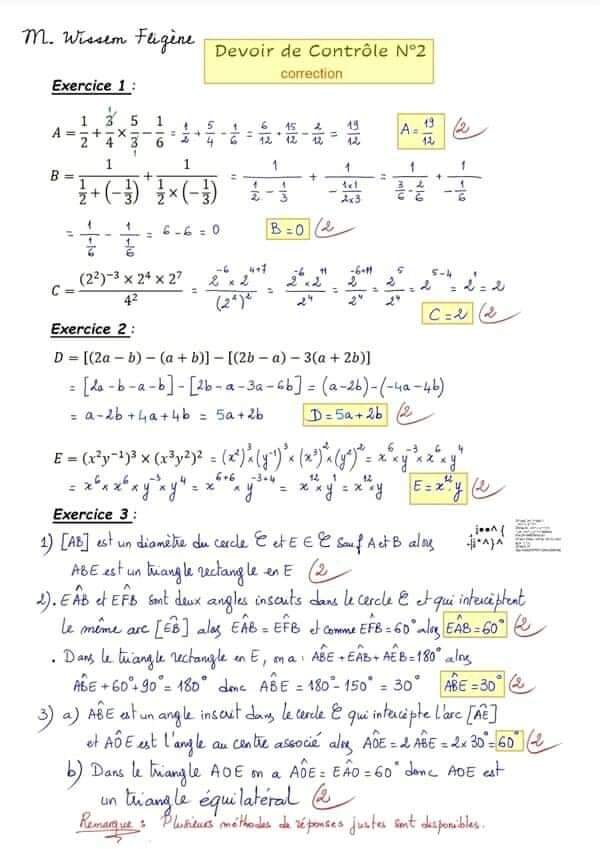 M. Wissem Fligène
Devoir de Contrôle N°2
correction
Exercice 1 :
A = 1/2 + 3/4 × 5/3 − 1/6 = 1/2 + 5/4 − 1/6 = 6/12 + 15/12 − 2/12 = 19/12 A = 19/12 (2
B = 1/(1/2 + (−1/3)) + 1/(1/2 × (−1/3)) = 1/(1/2 − 1/3) + 1/(−(1×1)/(2×3)) = 1/(3/6 − 2/6) + 1/(−1/6)
= 1/(1/6) − 1/(1/6) = 6 − 6 = 0 B = 0 (2
C = ((2²)⁻³ × 2⁴ × 2⁷)/4² = (2⁻⁶ × 2⁴⁺⁷)/(2²)² = (2⁻⁶ × 2¹¹)/2⁴ = 2⁻⁶⁺¹¹/2⁴ = 2⁵/2⁴ = 2⁵⁻⁴ = 2¹ = 2
C = 2 (2
Exercice 2 :
D = [(2a − b) − (a + b)] − [(2b − a) − 3(a + 2b)]
= [2a − b − a − b] − [2b − a − 3a − 6b] = (a − 2b) − (−4a − 4b)
= a − 2b + 4a + 4b = 5a + 2b D = 5a + 2b (2
E = (x²y⁻¹)³ × (x³y²)² = (x²)³ × (y⁻¹)³ × (x³)² × (y²)² = x⁶ × y⁻³ × x⁶ × y⁴
= x⁶ × x⁶ × y⁻³ × y⁴ = x⁶⁺⁶ × y⁻³⁺⁴ = x¹² × y¹ = x¹² × y E = x¹².y (2
Exercice 3 :
1) [AB] est un diamètre du cercle ℰ et E ∈ ℰ sauf A et B alors
ABE est un triangle rectangle en E (2
2). EÂB et EF̂B sont deux angles inscrits dans le cercle ℰ et qui interceptent
le même arc [EB̂] alors EÂB = EF̂B et comme EF̂B = 60° alors EÂB = 60° (2
. Dans le triangle rectangle en E, on a : AB̂E + EÂB + AÊB = 180° alors
AB̂E + 60° + 90° = 180° donc AB̂E = 180° − 150° = 30° AB̂E = 30° (2
3) a) AB̂E est un angle inscrit dans le cercle ℰ qui intercepte l'arc [AÊ]
et AÔE est l'angle au centre associé alors AÔE = 2 AB̂E = 2 × 30° = 60° (2
b) Dans le triangle AOE on a AÔE = EÂO = 60° donc AOE est
un triangle équilatéral (2
Remarque : Plusieurs méthodes de réponses justes sont disponibles.